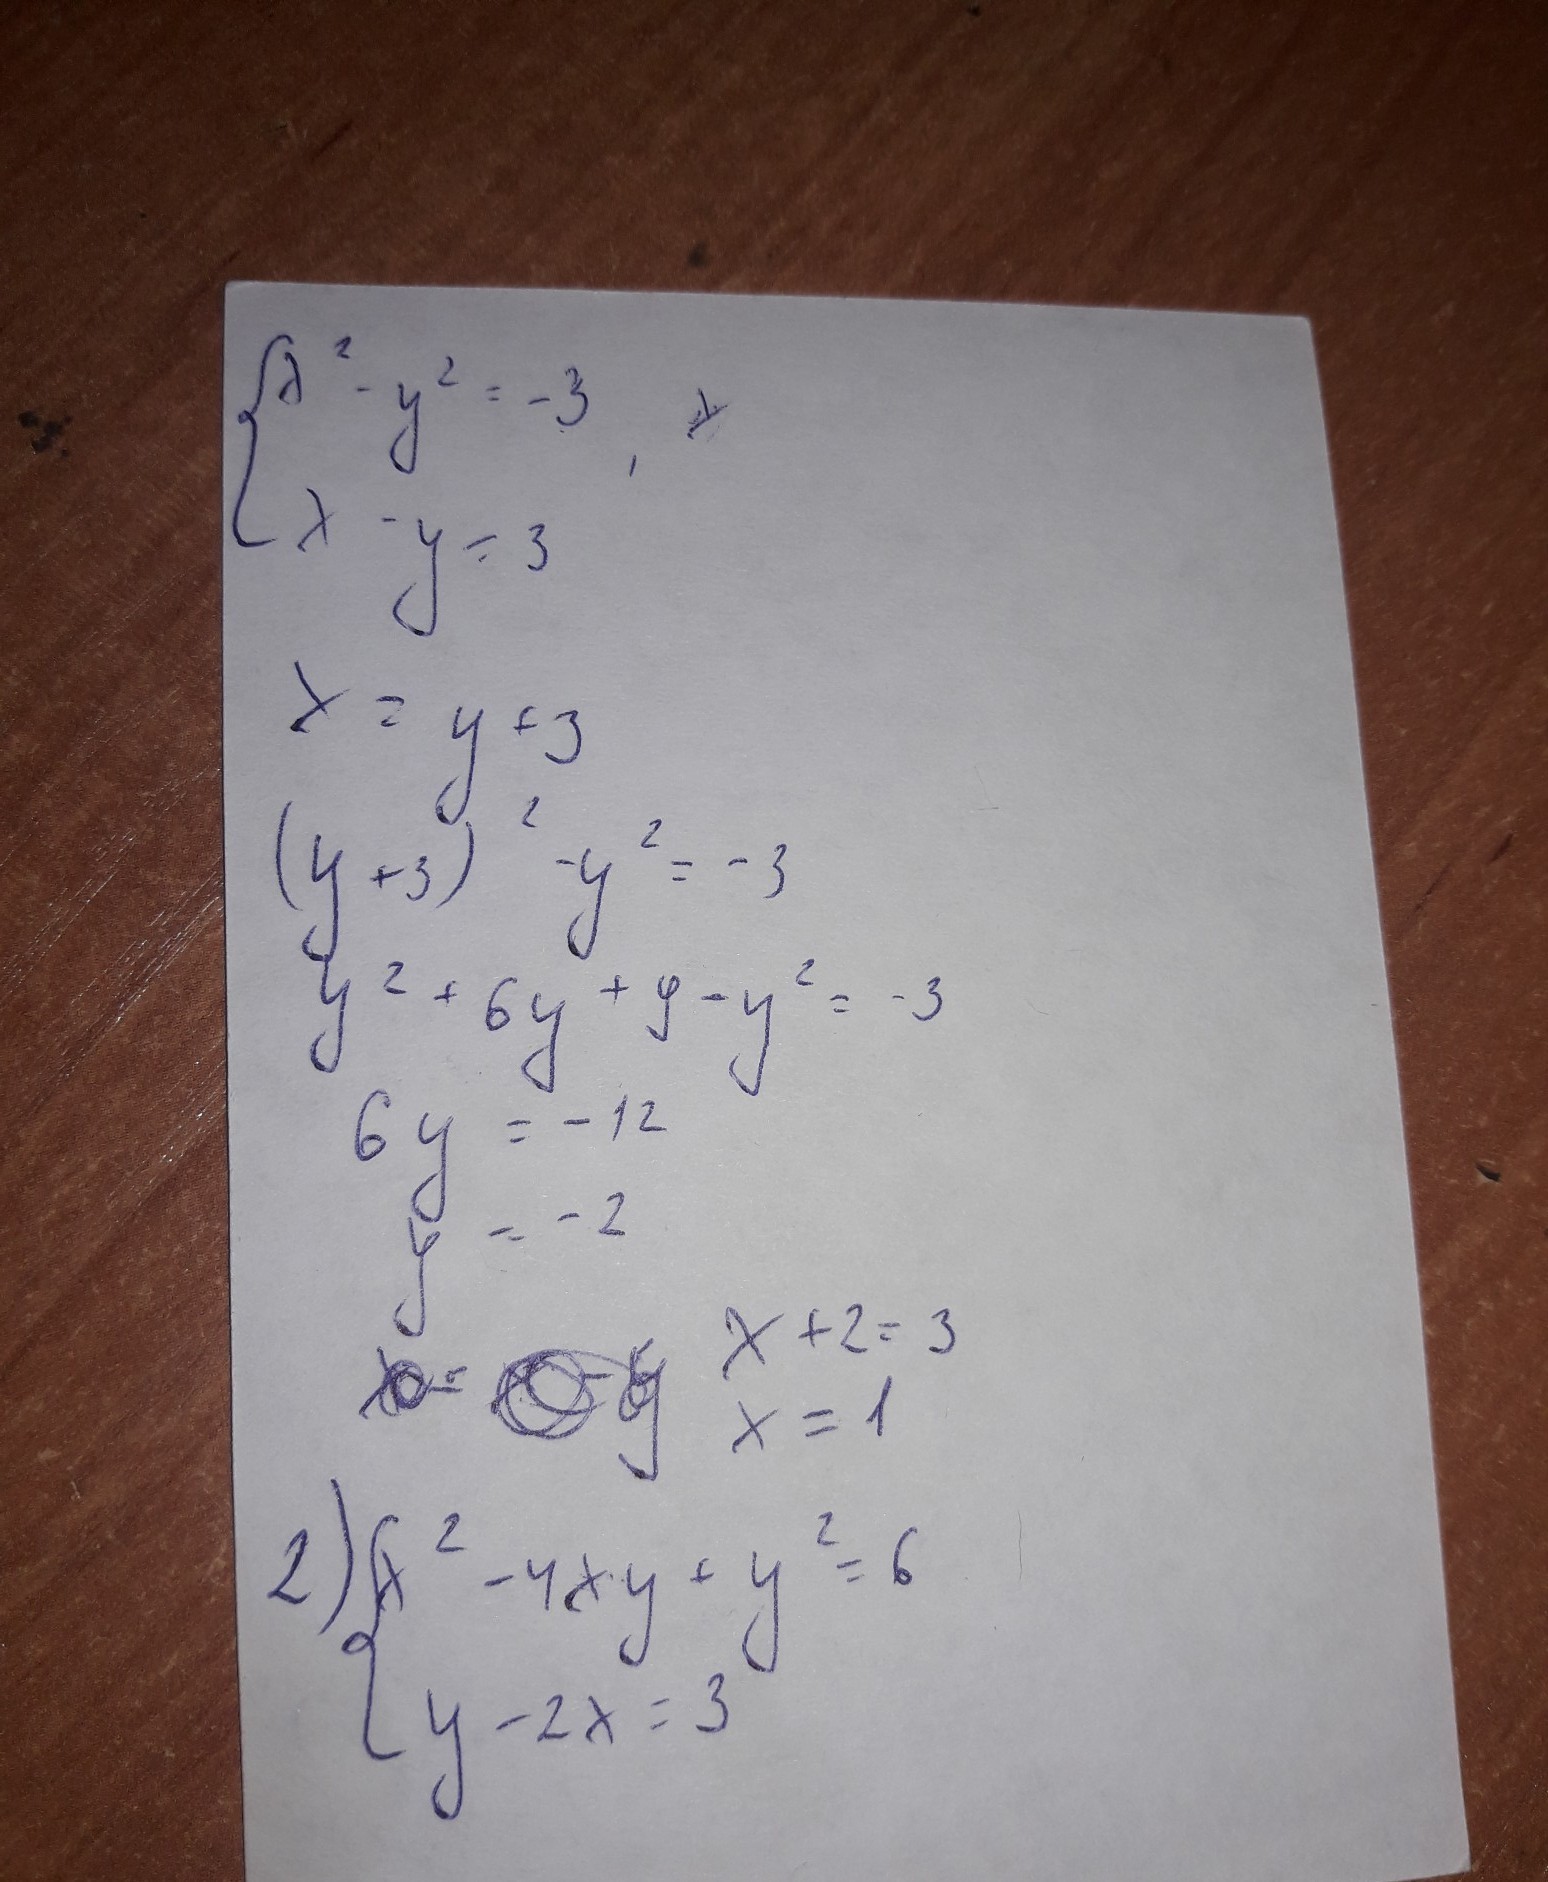 x² - y² = -3 , x
x - y = 3
x = y + 3
(y + 3)² - y² = -3
y² + 6y + 9 - y² = -3
6y = -12
y = -2
x + 2 = 3
x = 1
2) x² - 4xy + y² = 6
y - 2x = 3